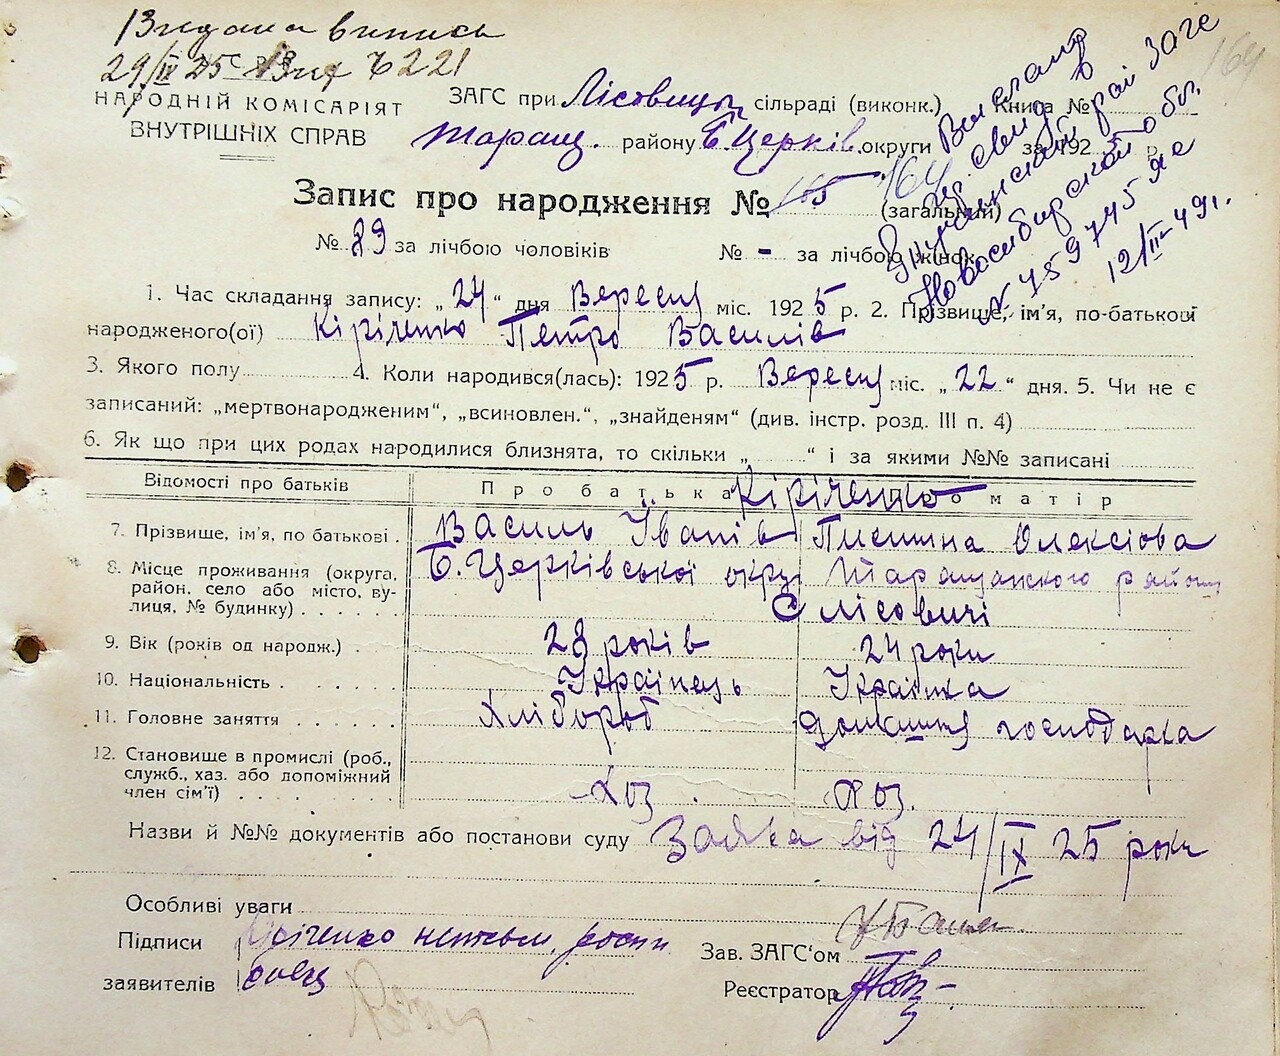 Видана випись
29/IX 25
НАРОДНІЙ КОМІСАРІЯТ
ВНУТРІШНІХ СПРАВ
164
Выслано
свид в
рай Загс
Новосибирской обл.
№ 759745 ЯЕ
12/II-49г.
ЗАГС при Лісовицьк сільраді (виконк.) Книга №
Таращ. району Б Церків. округи за 192 р.
Запис про народження № 165 164
(загальний)
№ 89 за лічбою чоловіків № - за лічбою жінок
1. Час складання запису: „24“ дня Вересня міс. 1925 р. 2. Прізвище, ім’я, по-батькові
народженого(ої) Кіріченко Петро Василів
3. Якого полу 4. Коли народився(лась): 1925 р. Вересня міс. „22“ дня. 5. Чи не є
записаний: „мертвонародженим“, „всиновлен.“, „знайденям“ (див. інстр. розд. III п. 4)
6. Як що при цих родах народилися близнята, то скільки „ “ і за якими №№ записані
Відомості про батьків Про батька Про матір
Кіріченко
7. Прізвище, ім’я, по батькові . Василь Іванів Олексіова
8. Місце проживання (округа, район, село або місто, вулиця, № будинку) Б. Церківської округ Таращанского району
С Лісовичі
9. Вік (років од народж.) . 28 років 24 роки
10. Національність Українець Українка
11. Головне заняття Хлібороб домашня господарка
12. Становище в промислі (роб., служб., хаз. або допоміжний член сім’ї) Хоз. Хоз.
Назви й №№ документів або постанови суду Заявка від 24/IX 25 роки
Особливі уваги
Підписи Кіріченко
заявителів
Зав. ЗАГС‘ом
Реєстратор